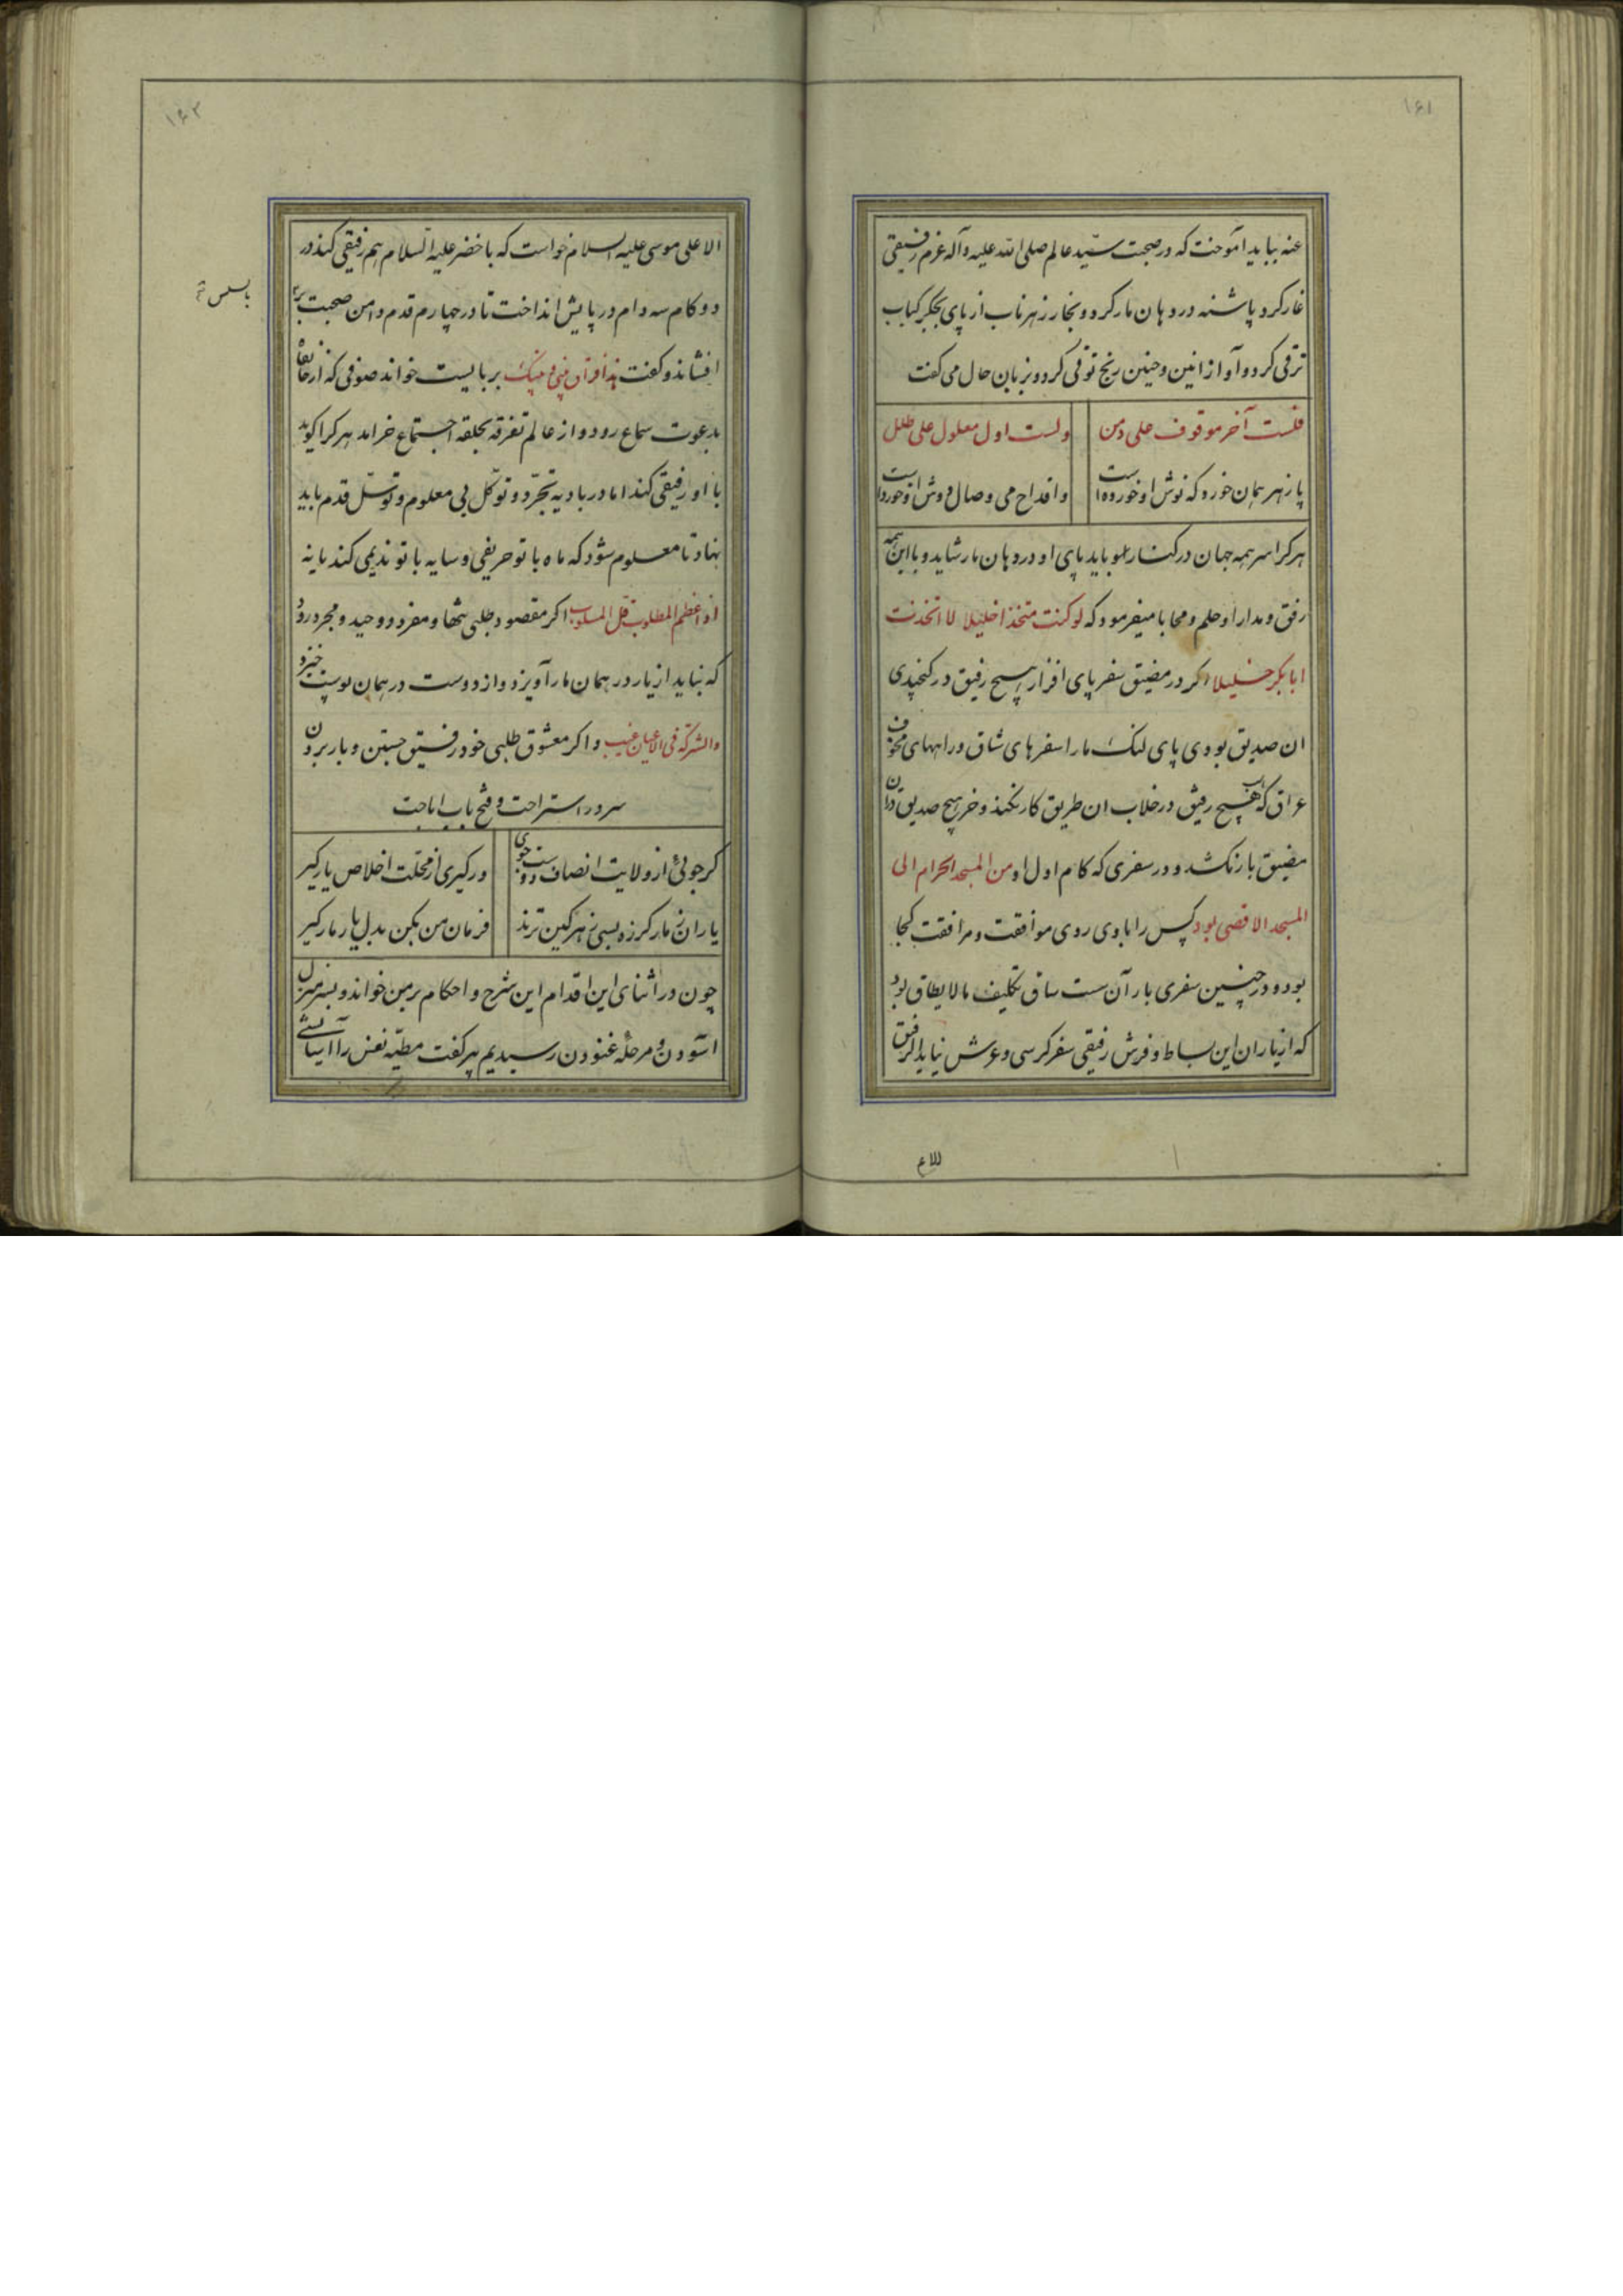 ۱۶۱
عنه بباید آموخت که در صحبت سید عالم صلی الله علیه و آله عزم رفیقی
غار کرد و پاشنه در دهان مار کرد و بخار زهر ناب از پای بجگر کباب
ترقی کرد و آواز انین و حنین رنج توقی کرد و بزبان حال می گفت
فلست آخر موقوف علی دمن
ولست اول معلول علی طلل
پا زهر همان خورد که نوش او خورده است
و اقداح می وصال دوش او خورد است
هر کرا سر همه جهان در کنار او باید پای او در دهان مار شاید و با این همه
رفق و مدارا و حلم و محابا میفرمود که لو کنت متخذا خلیلا لا اتخذت
ابا بکر خلیلا اگر در مضیق سفر پای افزار هیچ رفیق در گنجیدی
ان صدیق بودی پای لنک ما را سفرهای شاق و راههای مخوف
عراق که هیچ رفیق در خلاب ان طریق کار نکند و خر هیچ صدیق در ان
مضیق بار نکشد و در سفری که کام اول او من المسجد الحرام الی
المسجد الاقصی بود کس را با وی روی موافقت و مرافقت کجا
بود و در چنین سفری بار آن سست ساق تکلیف مالا یطاق بود
که از یاران این بساط و فرش رفیقی سفر کرسی و عرش نیاید الرفیق
۱۶۲
الاعلی موسی علیه السلام خواست که با خضر علیه السلام هم رفیقی کند در
دو کام سه دام در پایش انداخت تا در چهارم قدم دامن صحبت
افشاند و گفت هذا فراق بینی و بینک بر بایست خواند صوفی که از خانقاه
بدعوت سماع رود و از عالم تفرقه بحلقه اجتماع خرامد هر کرا گوید
با او رفیقی کند اما در بادیه تجرد و توکل بی معلوم و توسل قدم باید
نهاد تا معلوم شود که ماه با تو حریفی و سایه با تو ندیمی کند یا نه
اذا عظم المطلوب قل المساعد اگر مقصود طلبی تنها و مفرد و وحید و مجرد رو
که نباید از یار در همان مار آویزد و از دوست در همان پوست خیزد
والشرکة فی الاعیان عیب و اگر معشوق طلبی خود رفیق جستن و بار بردن
سرور استراحت و فتح باب اباحت
گر جوئی از ولایت انصاف دوست جوی
ور گیری از محلت اخلاص یار گیر
یاران ز مار کرزه بسی زهرگین ترند
فرمان من بکن بدل یار مار گیر
چون در اثنای این اقدام این شرح و احکام بر من خواند و بسر منزل
آسودن و مرحله غنودن رسیدیم پیر گفت مطیه نفس را آسایشی